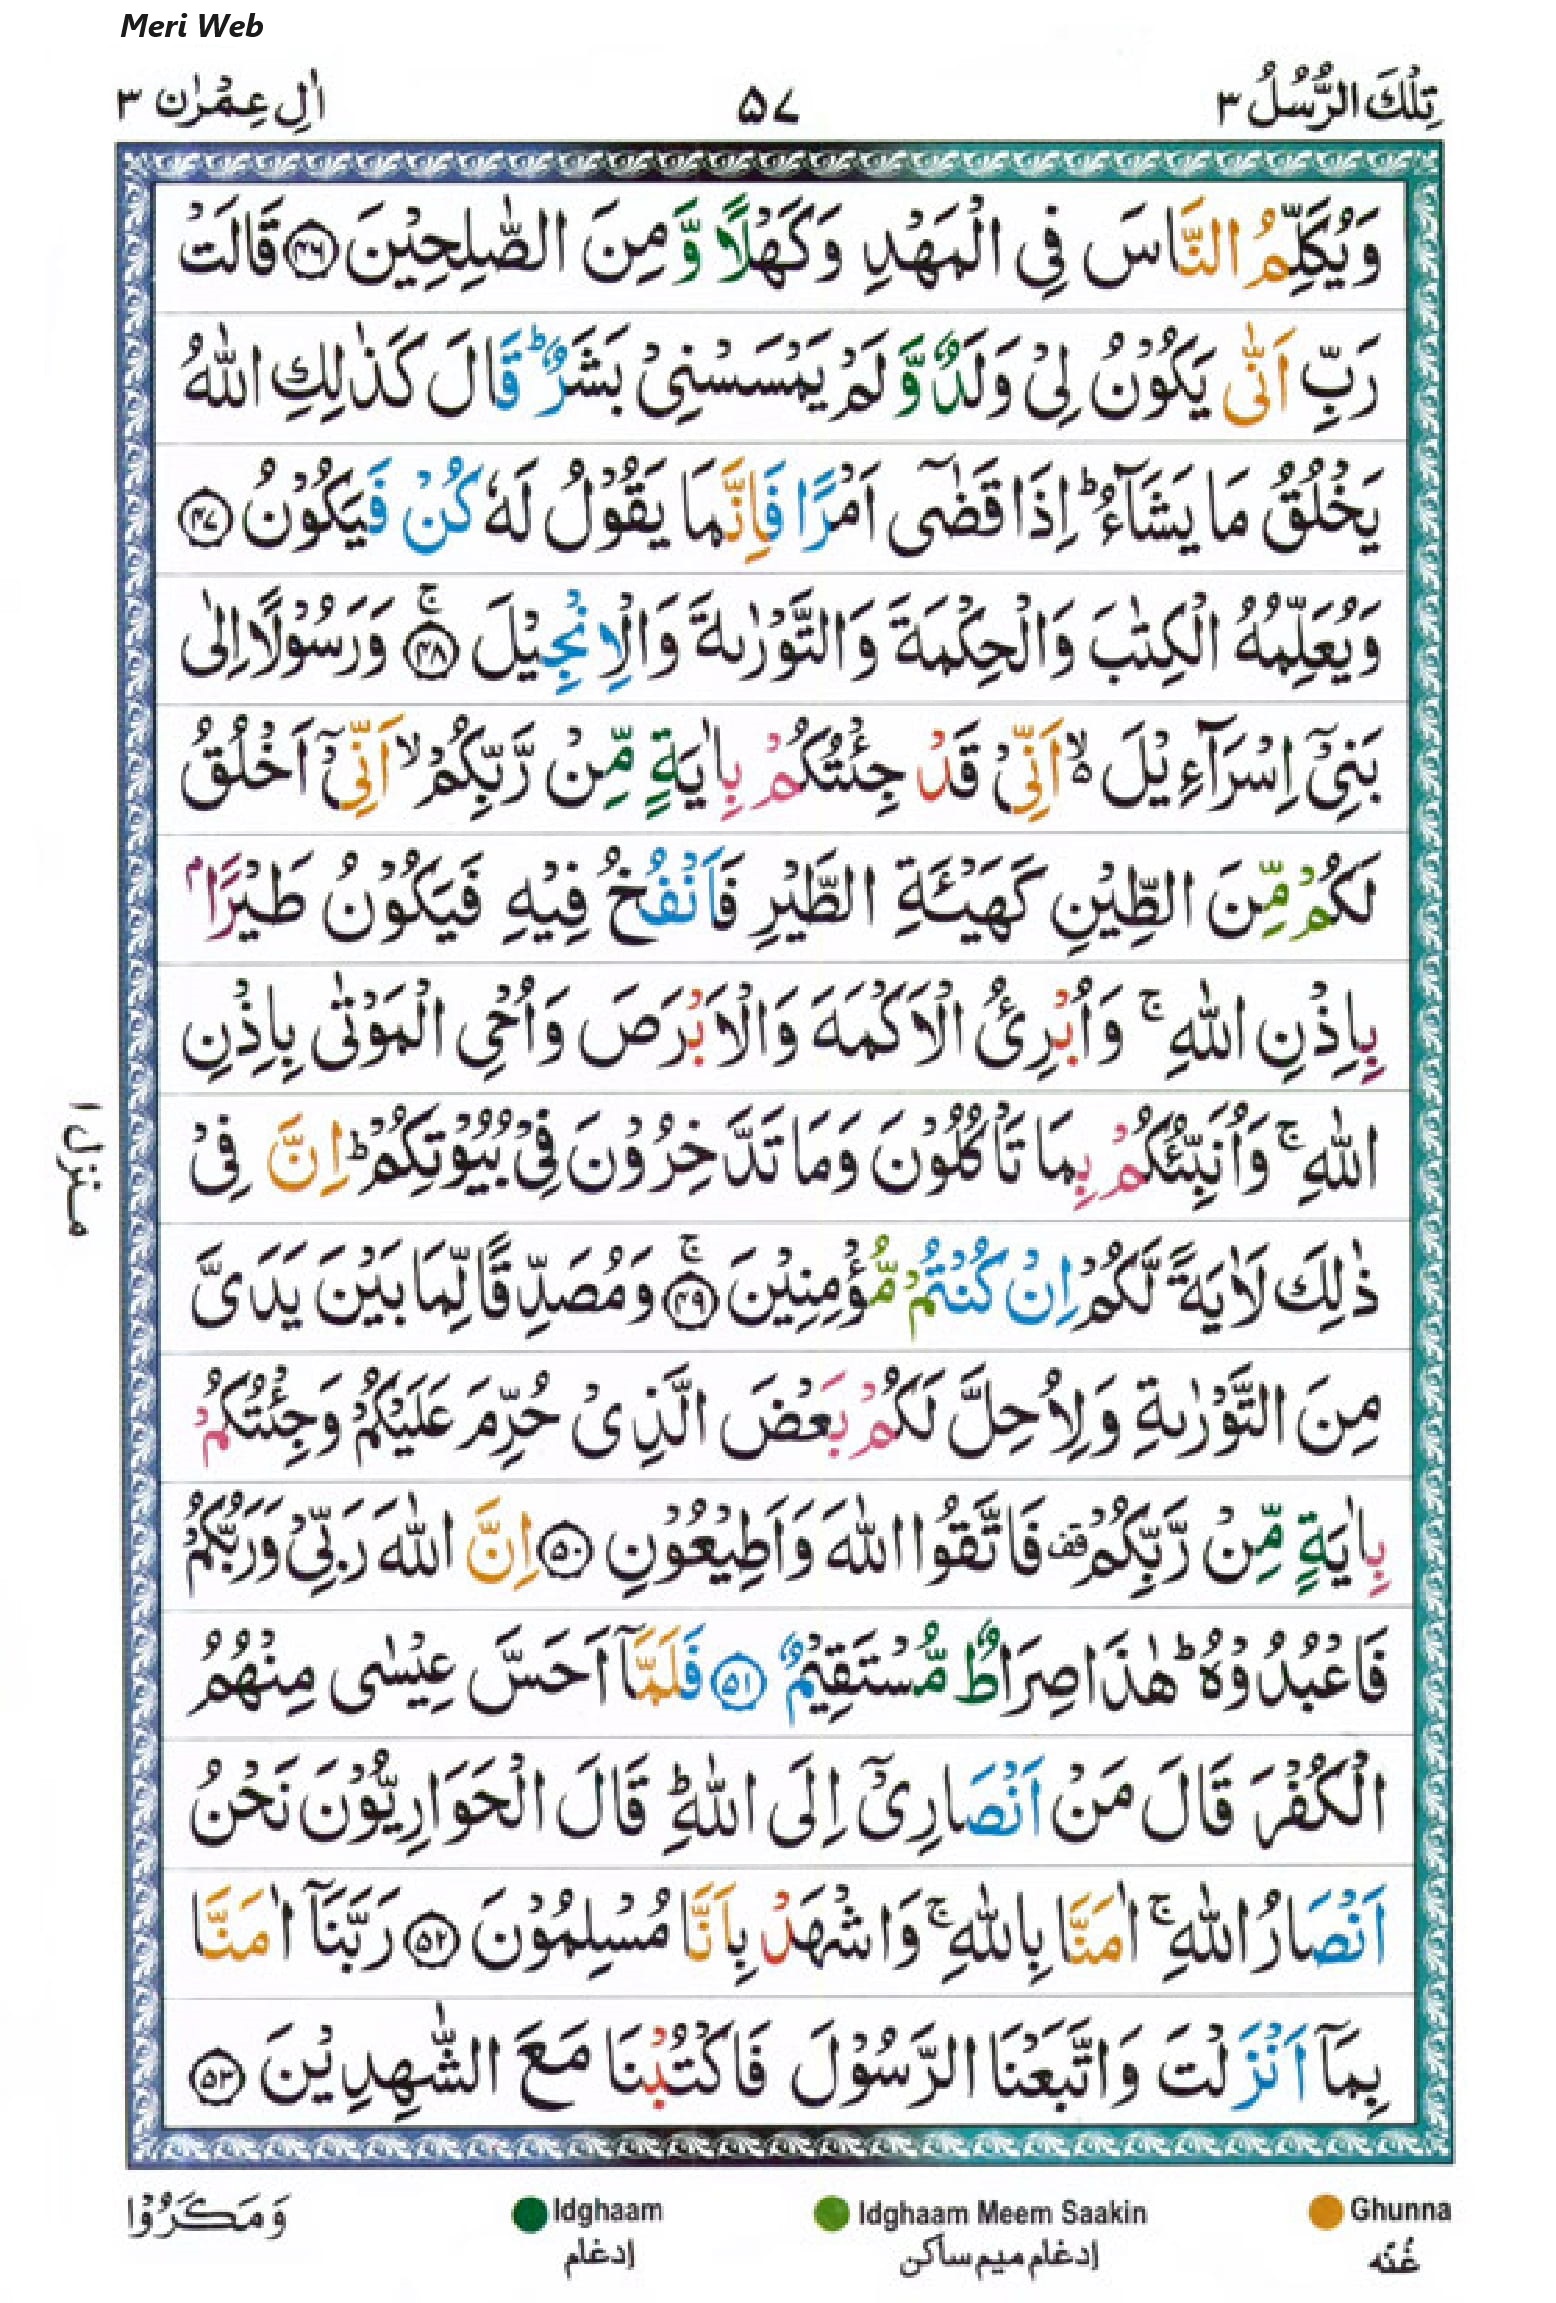 Meri Web
تِلْكَ الرُّسُلُ ٣ ٥٧ اٰلِ عِمْرٰن ٣
وَيُكَلِّمُ النَّاسَ فِى الْمَهْدِ وَكَهْلًا وَّمِنَ الصّٰلِحِيْنَ ﴿۴۶﴾ قَالَتْ
رَبِّ اَنّٰى يَكُوْنُ لِىْ وَلَدٌ وَّلَمْ يَمْسَسْنِىْ بَشَرٌ ؕ قَالَ كَذٰلِكِ اللّٰهُ
يَخْلُقُ مَا يَشَآءُ ؕ اِذَا قَضٰٓى اَمْرًا فَاِنَّمَا يَقُوْلُ لَهٗ كُنْ فَيَكُوْنُ ﴿۴۷﴾
وَيُعَلِّمُهُ الْكِتٰبَ وَالْحِكْمَةَ وَالتَّوْرٰىةَ وَالْاِنْجِيْلَ ﴿۴۸﴾ ۚ وَرَسُوْلًا اِلٰى
بَنِىْٓ اِسْرَآءِيْلَ ۙ۬ اَنِّىْ قَدْ جِئْتُكُمْ بِاٰيَةٍ مِّنْ رَّبِّكُمْ ۙ اَنِّىْٓ اَخْلُقُ
لَكُمْ مِّنَ الطِّيْنِ كَهَيْـَٔةِ الطَّيْرِ فَاَنْفُخُ فِيْهِ فَيَكُوْنُ طَيْرًاۢ
بِاِذْنِ اللّٰهِ ۚ وَاُبْرِئُ الْاَكْمَهَ وَالْاَبْرَصَ وَاُحْىِ الْمَوْتٰى بِاِذْنِ
اللّٰهِ ۚ وَاُنَبِّئُكُمْ بِمَا تَاْكُلُوْنَ وَمَا تَدَّخِرُوْنَ فِىْ بُيُوْتِكُمْ ؕ اِنَّ فِىْ
ذٰلِكَ لَاٰيَةً لَّكُمْ اِنْ كُنْتُمْ مُّؤْمِنِيْنَ ﴿۴۹﴾ ۚ وَمُصَدِّقًا لِّمَا بَيْنَ يَدَىَّ
مِنَ التَّوْرٰىةِ وَلِاُحِلَّ لَكُمْ بَعْضَ الَّذِىْ حُرِّمَ عَلَيْكُمْ وَجِئْتُكُمْ
بِاٰيَةٍ مِّنْ رَّبِّكُمْ قف فَاتَّقُوا اللّٰهَ وَاَطِيْعُوْنِ ﴿۵۰﴾ اِنَّ اللّٰهَ رَبِّىْ وَرَبُّكُمْ
فَاعْبُدُوْهُ ؕ هٰذَا صِرَاطٌ مُّسْتَقِيْمٌ ﴿۵۱﴾ فَلَمَّآ اَحَسَّ عِيْسٰى مِنْهُمُ
الْكُفْرَ قَالَ مَنْ اَنْصَارِىْٓ اِلَى اللّٰهِ ؕ قَالَ الْحَوَارِيُّوْنَ نَحْنُ
اَنْصَارُ اللّٰهِ ۚ اٰمَنَّا بِاللّٰهِ ۚ وَاشْهَدْ بِاَنَّا مُسْلِمُوْنَ ﴿۵۲﴾ رَبَّنَآ اٰمَنَّا
بِمَآ اَنْزَلْتَ وَاتَّبَعْنَا الرَّسُوْلَ فَاكْتُبْنَا مَعَ الشّٰهِدِيْنَ ﴿۵۳﴾
منزل ١
Ghunna Idghaam Meem Saakin Idghaam وَمَكَرُوْا
غُنّه ادغام ميم ساكن ادغام